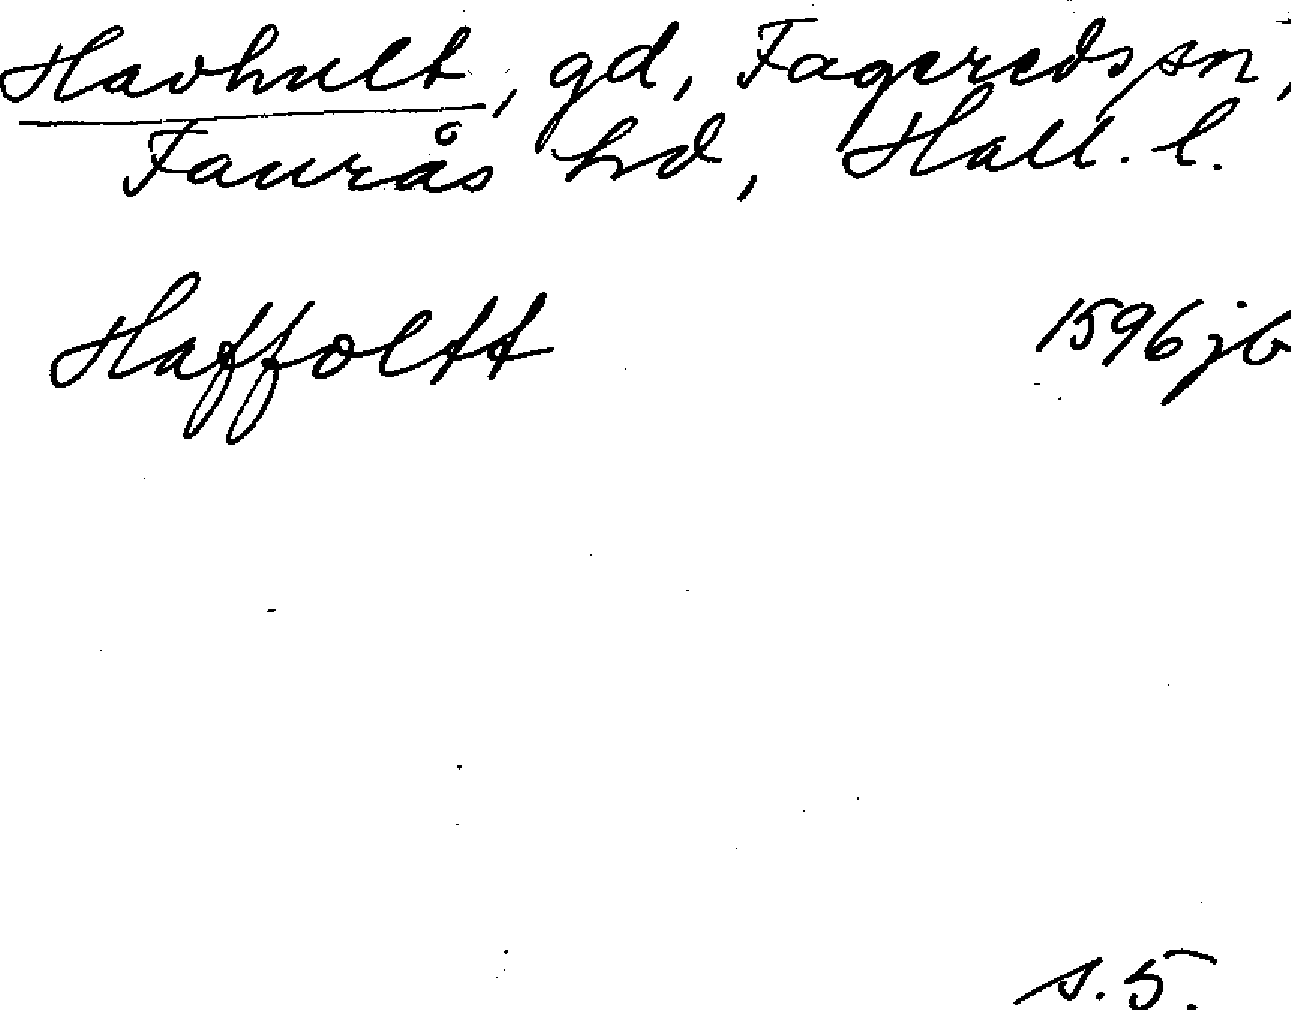 Havhult, gd, Fagereds sn,
Faurås hd, Hall. l.
Haffoltt 1596 jb
s. 5.